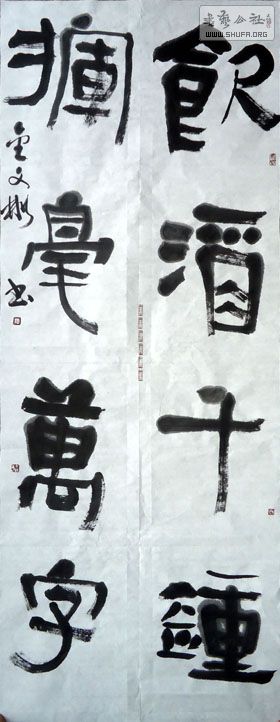 書藝公社
WWW.SHUFA.ORG
飲酒千鍾
揮毫萬字
金文彬书